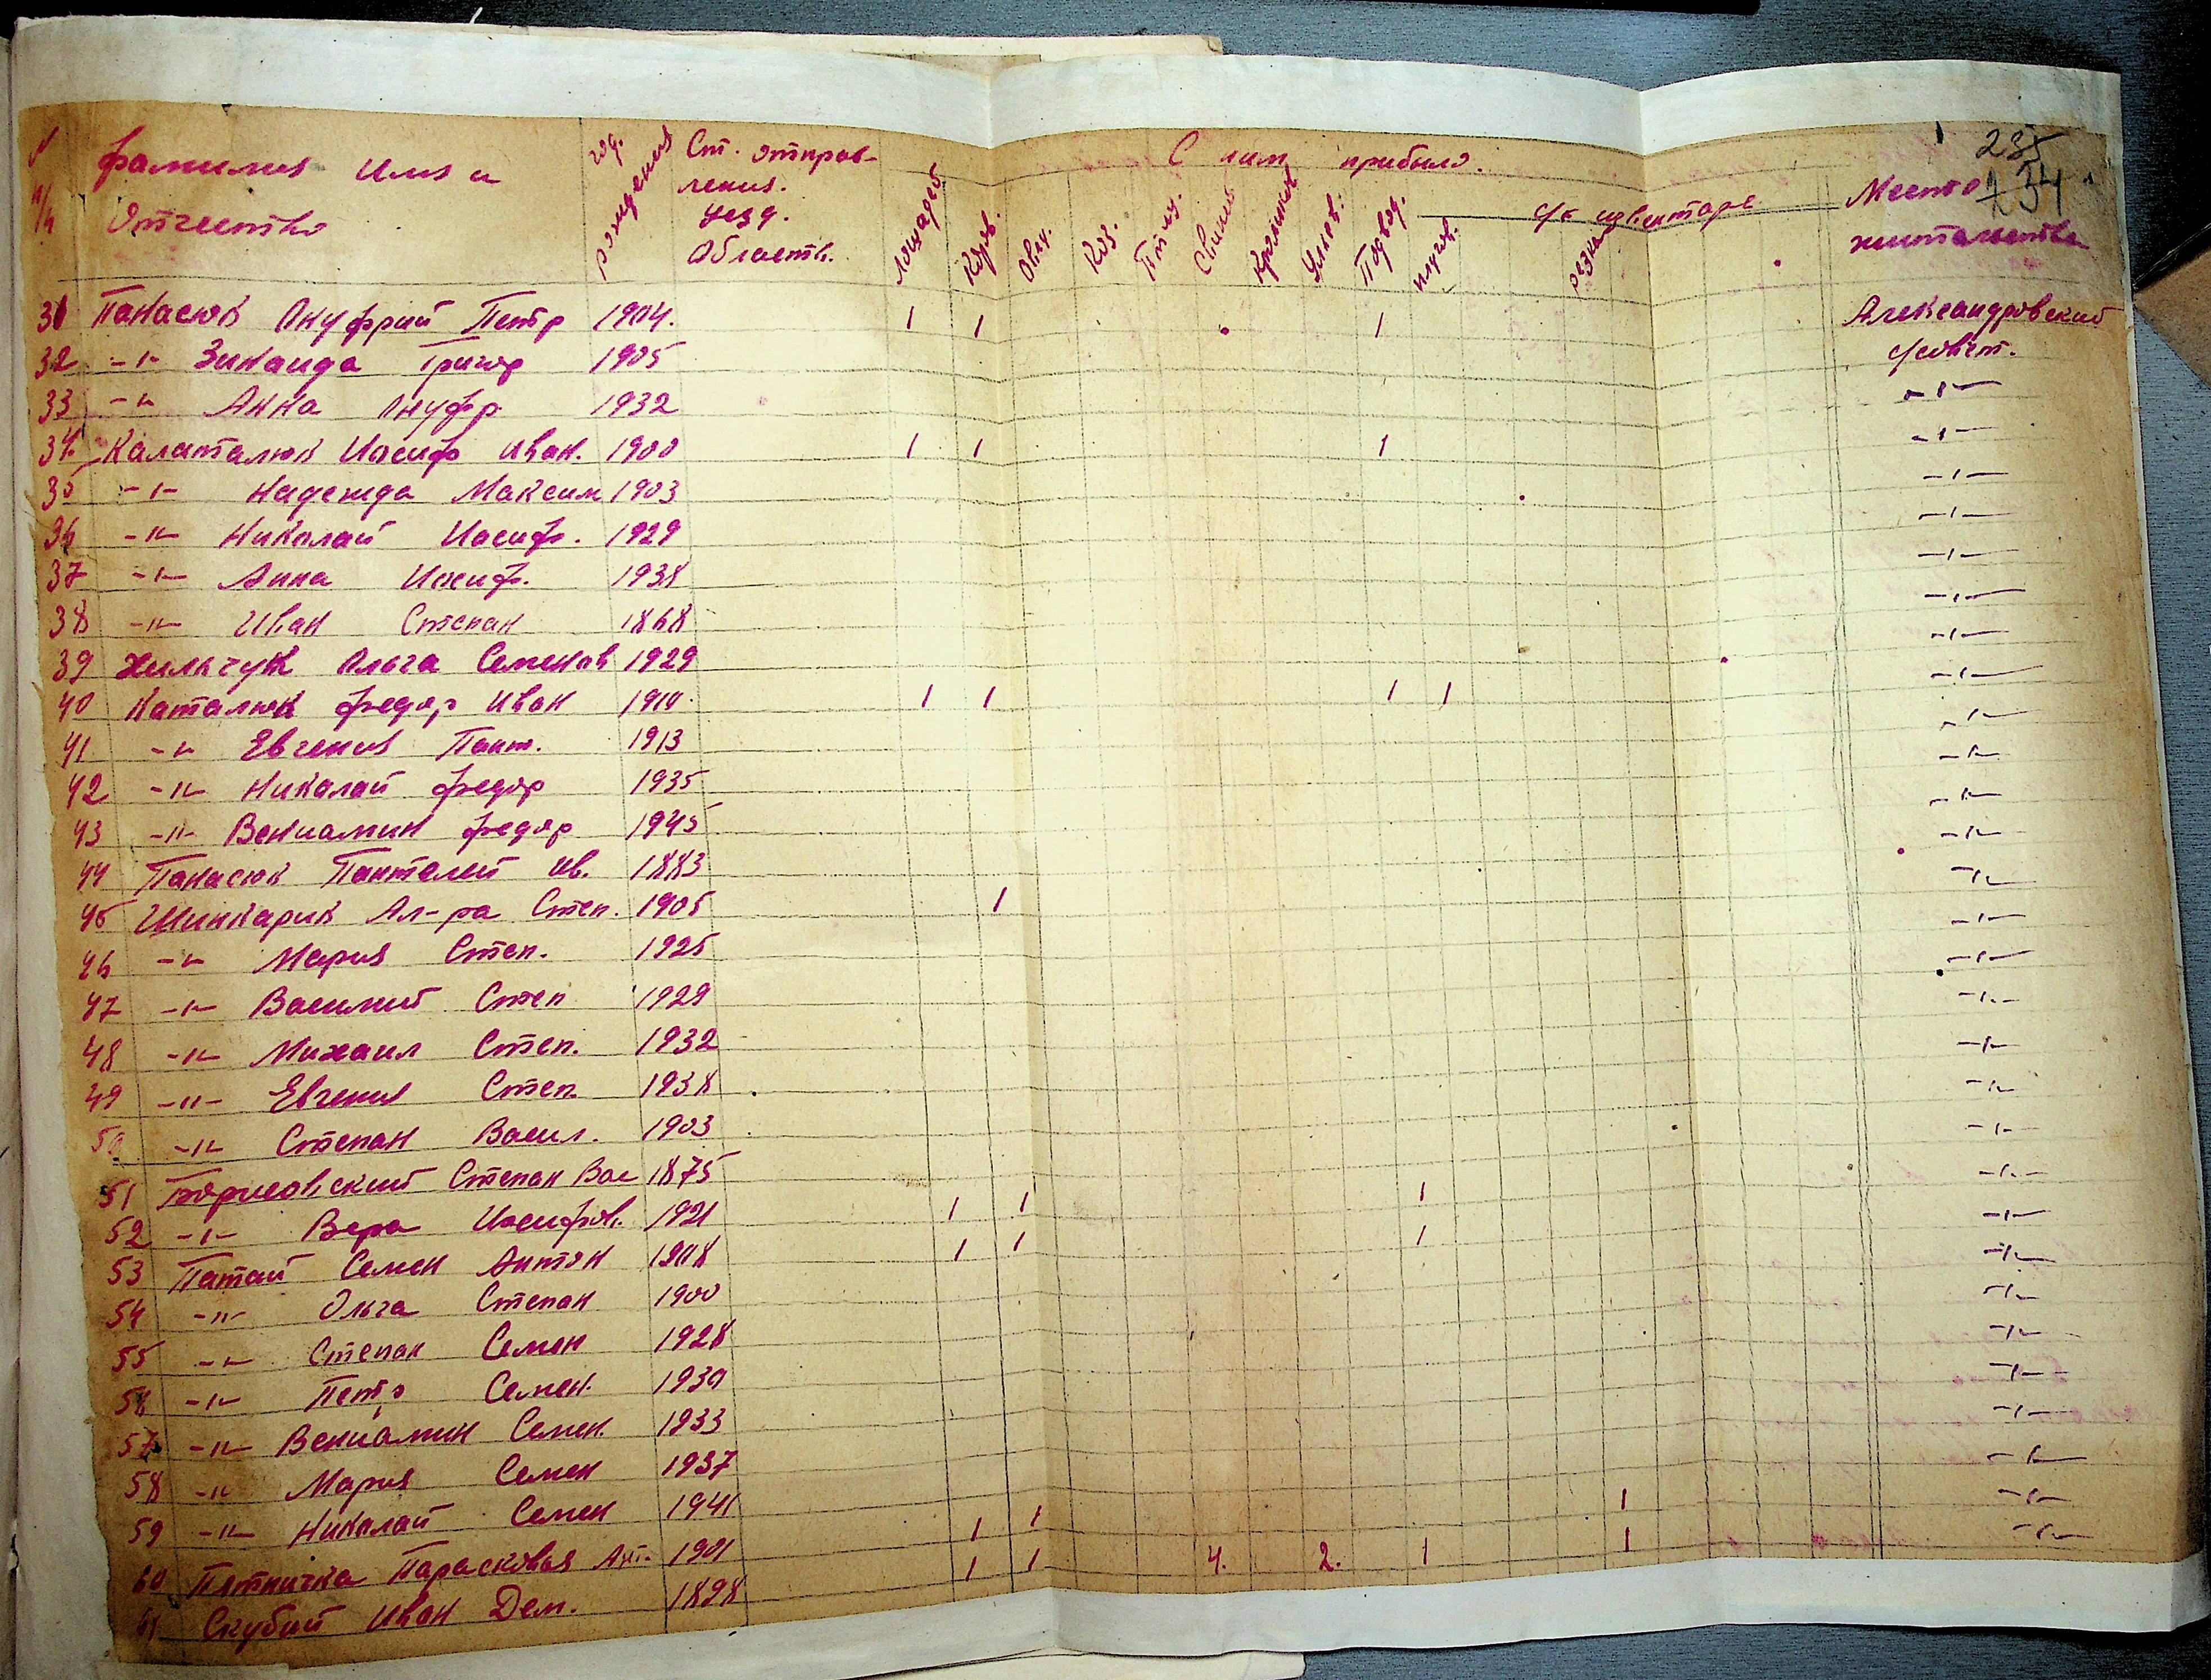 235
234
N п/п Фамилия Имя и Отчество год. рождения Ст. отправления. уезд. Область. С ним прибыло. Место жительства
лошадей Коров. Овец. Коз. Птиц. Свиней Кроликов Ульев. Подвод. с/х инвентаря плугов. резка
31 Панасюк Ануфрий Петр 1904. 1 1 1 Александровский
32 -"- Зинаида Григор 1905 с/совет.
33 -"- Анна Ануфр. 1932 -"-
34 Калаталюк Иосиф Иван. 1900 1 1 1 -"-
35 -"- Надежда Максим 1903 -"-
36 -"- Николай Иосиф. 1929 -"-
37 -"- Анна Иосиф. 1938 -"-
38 -"- Иван Степан 1868 -"-
39 Хильчук Ольга Семенов 1929 -"-
40 Каталюк Федор Иван 1910. 1 1 1 1 -"-
41 -"- Евгения Пант. 1913 -"-
42 -"- Николай Федор 1935 -"-
43 -"- Вениамин Федор 1945 -"-
44 Панасюк Пантелей Ив. 1883 -"-
45 Шинкарик Ал-ра Степ. 1905 1 -"-
46 -"- Мария Степ. 1925 -"-
47 -"- Василий Степ 1929 -"-
48 -"- Михаил Степ. 1932 -"-
49 -"- Евгения Степ. 1938 -"-
50 -"- Степан Васил. 1903 -"-
51 Борисовский Степан Вас 1875 1 1 1 -"-
52 -"- Вера Иосифов. 1921 -"-
53 Патай Семен Антон 1908 1 1 1 -"-
54 -"- Ольга Степан 1900 -"-
55 -"- Степан Семен 1928 -"-
56 -"- Петр Семен. 1930 -"-
57 -"- Вениамин Семен. 1933 -"-
58 -"- Мария Семен 1937 -"-
59 -"- Николай Семен 1941 -"-
60 Пятничка Парасковья Ант. 1901 1 1 1 -"-
61 Скубий Иван Дем. 1898 1 1 4. 2. 1 1 -"-